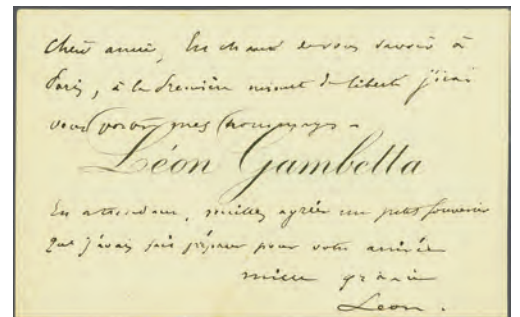 Chère amie, Enchanté de vous savoir à
Paris, à la première minute de liberté j'irai
vous porter mes hommages.
Léon Gambetta
En attendant, veuillez agréer un petit souvenir
que j'avais fait préparer pour votre arrivée
mille
Léon.